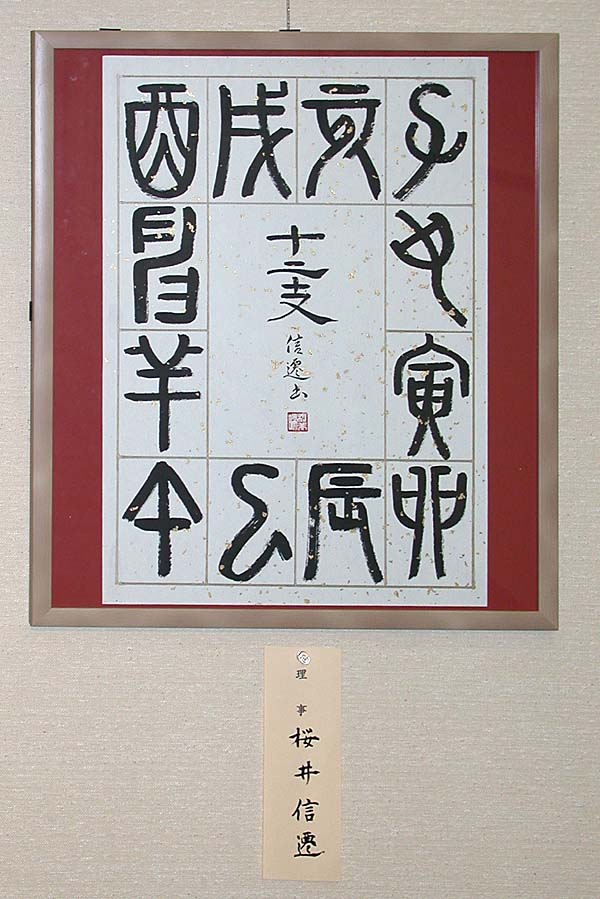 子
丑
寅
卯
辰
巳
午
未
申
酉
戌
亥
十二支
信遷書
理事
桜井信遷